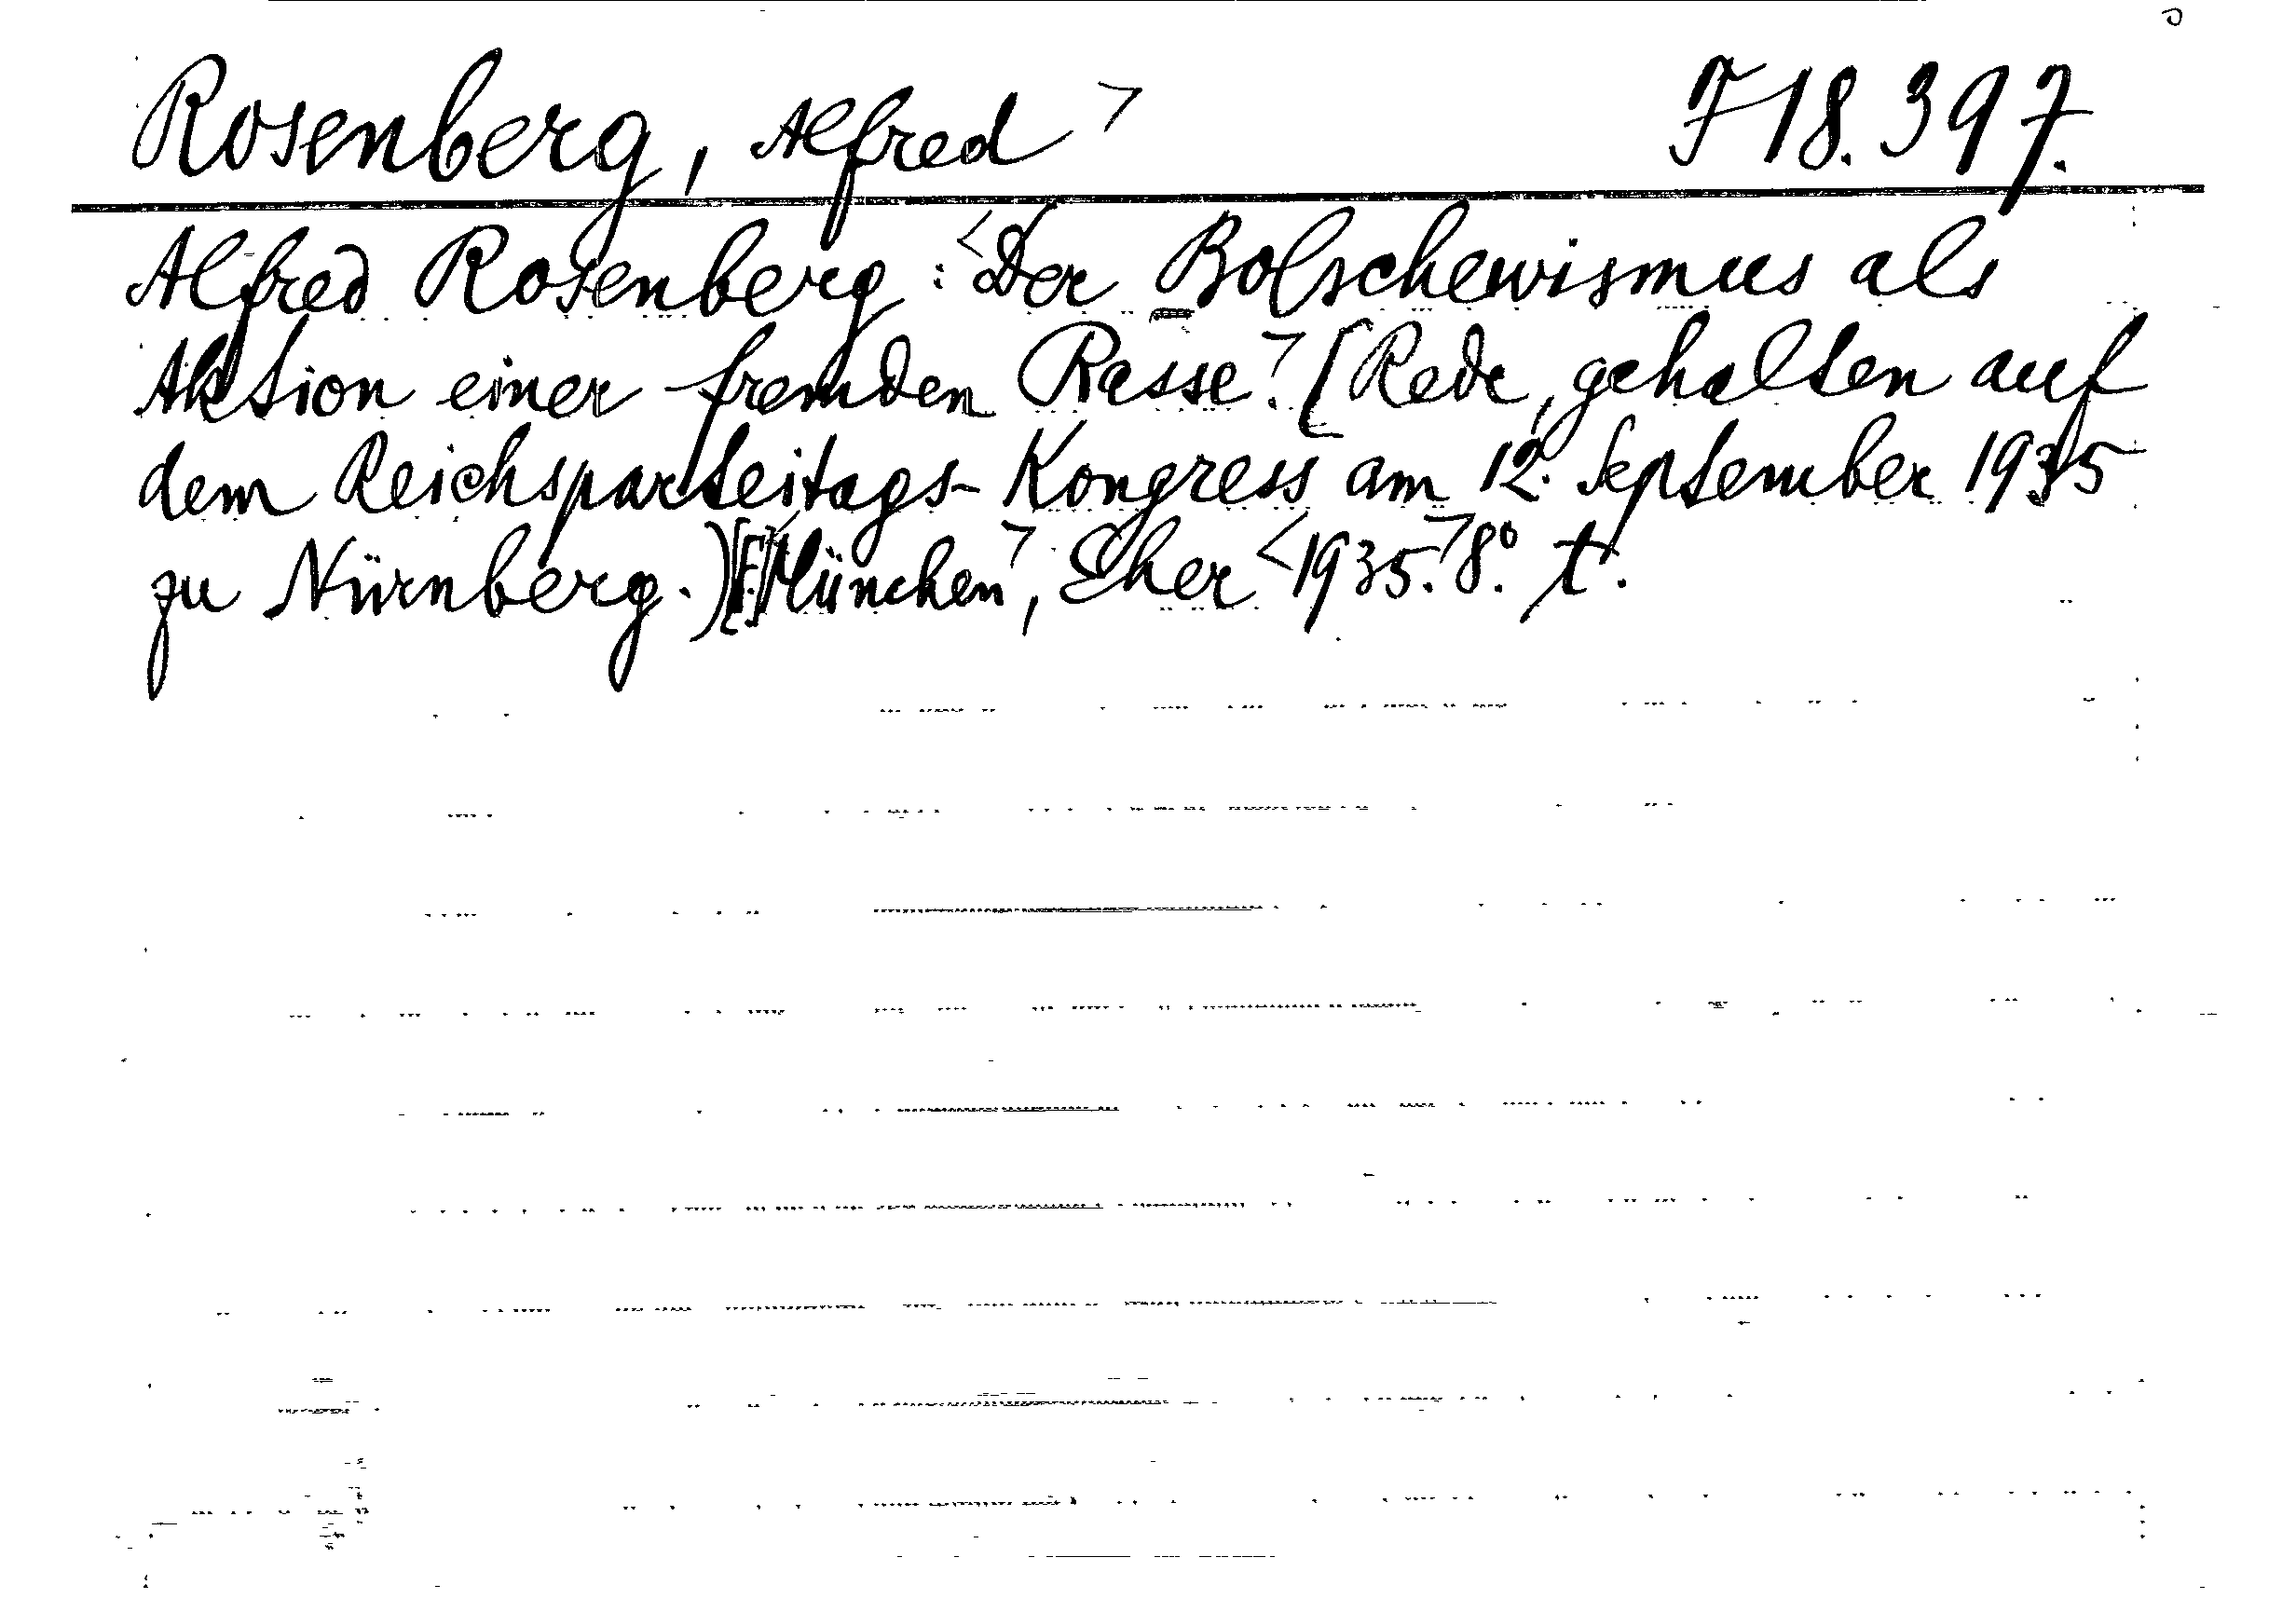 Rosenberg, Alfred > F 18.397.
Alfred Rosenberg: <Der Bolschewismus als
Aktion einer fremden Rasse>. (Rede, gehalten auf
dem Reichsparteitags-Kongress am 12. September 1935
zu Nürnberg.) <München>, Eher <1935.> 8°. t.